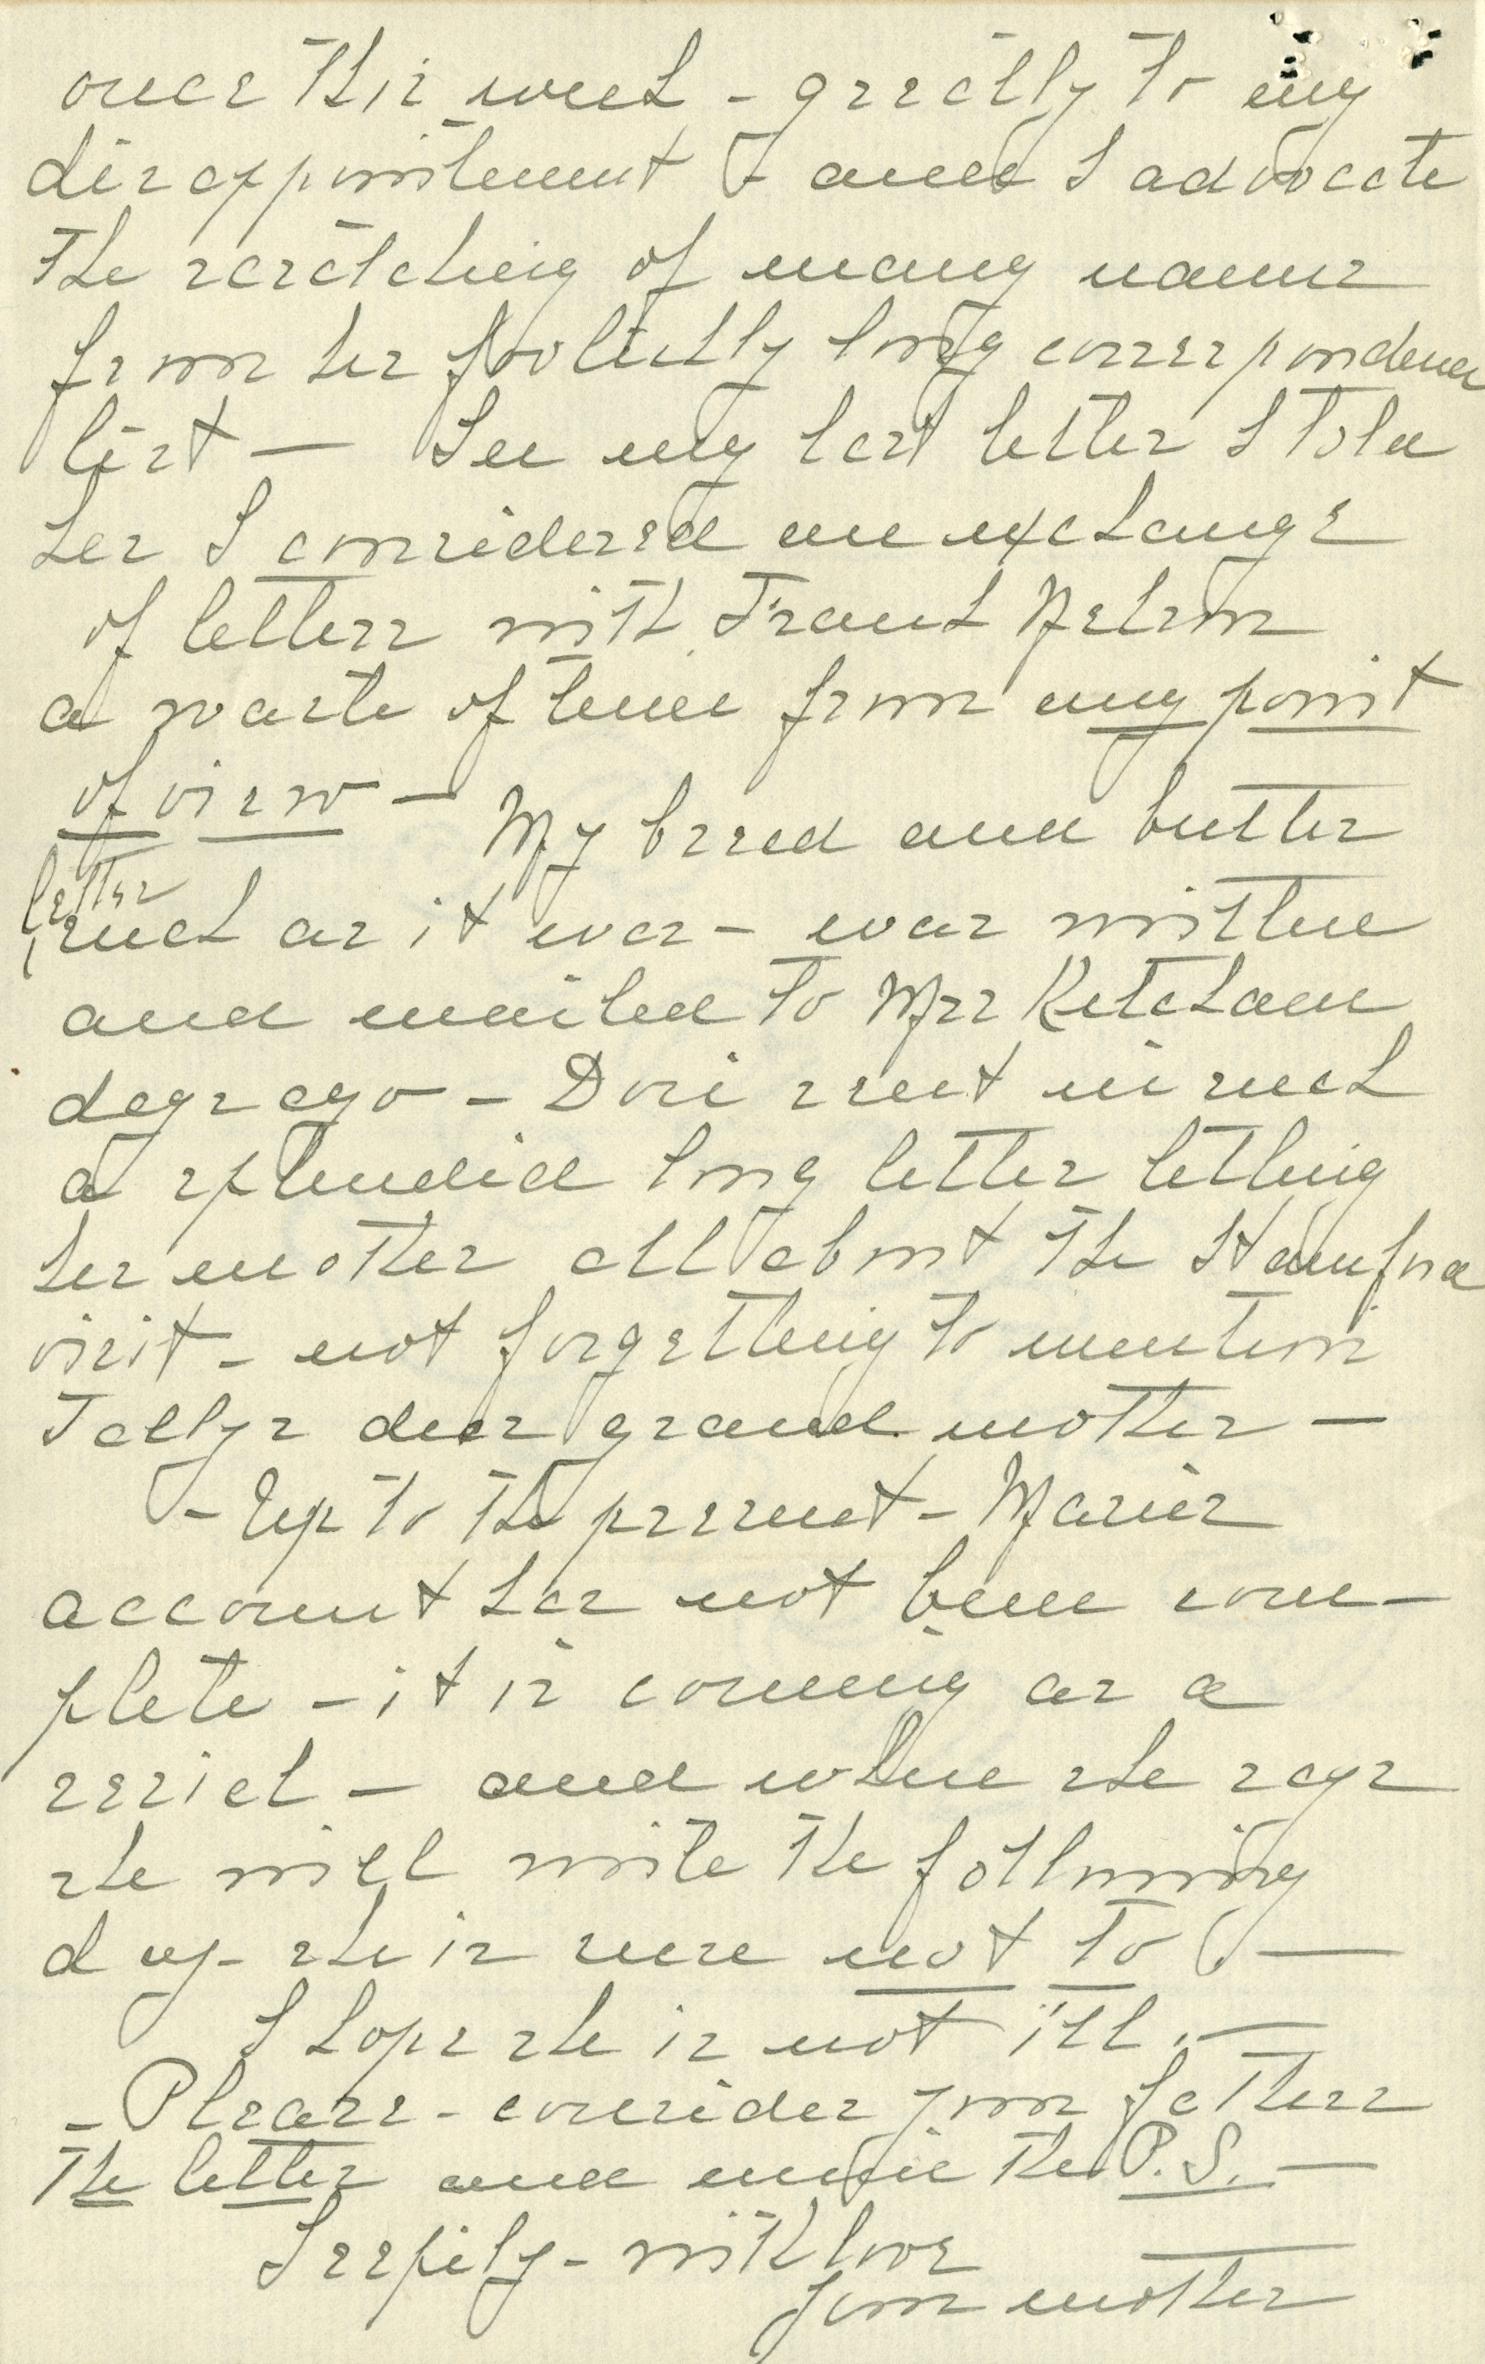 once this week - greatly to my
disappointment & and I advocate
the scratching of many names
from her foolishly long correspondence
list — In my last letter I told
her I considered an exchange
of letters with Frank Nelson
a waste of time from my point
of view — My bread and butter
letter
such as it was - was written
and mailed to Mrs Ketcham
days ago - Dori sent in such
a splendid long letter telling
her mother all about the Stamford
visit - not forgetting to mention
Tally's dear grandmother —
- Up to the present - Marie's
account has not been com-
plete - it is coming as a
serial - and when she says
she will write the following
day - she is sure not to —
I hope she is not ill. —
- Please - consider your fathers
the letter and mine the P.S. —
Sleepily - with love
Your mother